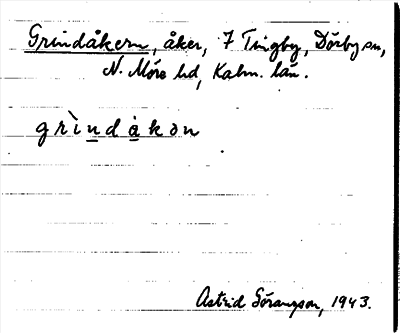 Grindåkern, åker, 7 Tingby, Dörby sn,
N. Möre hd, Kalm. län.
grìndàkọn
Astrid 1943.